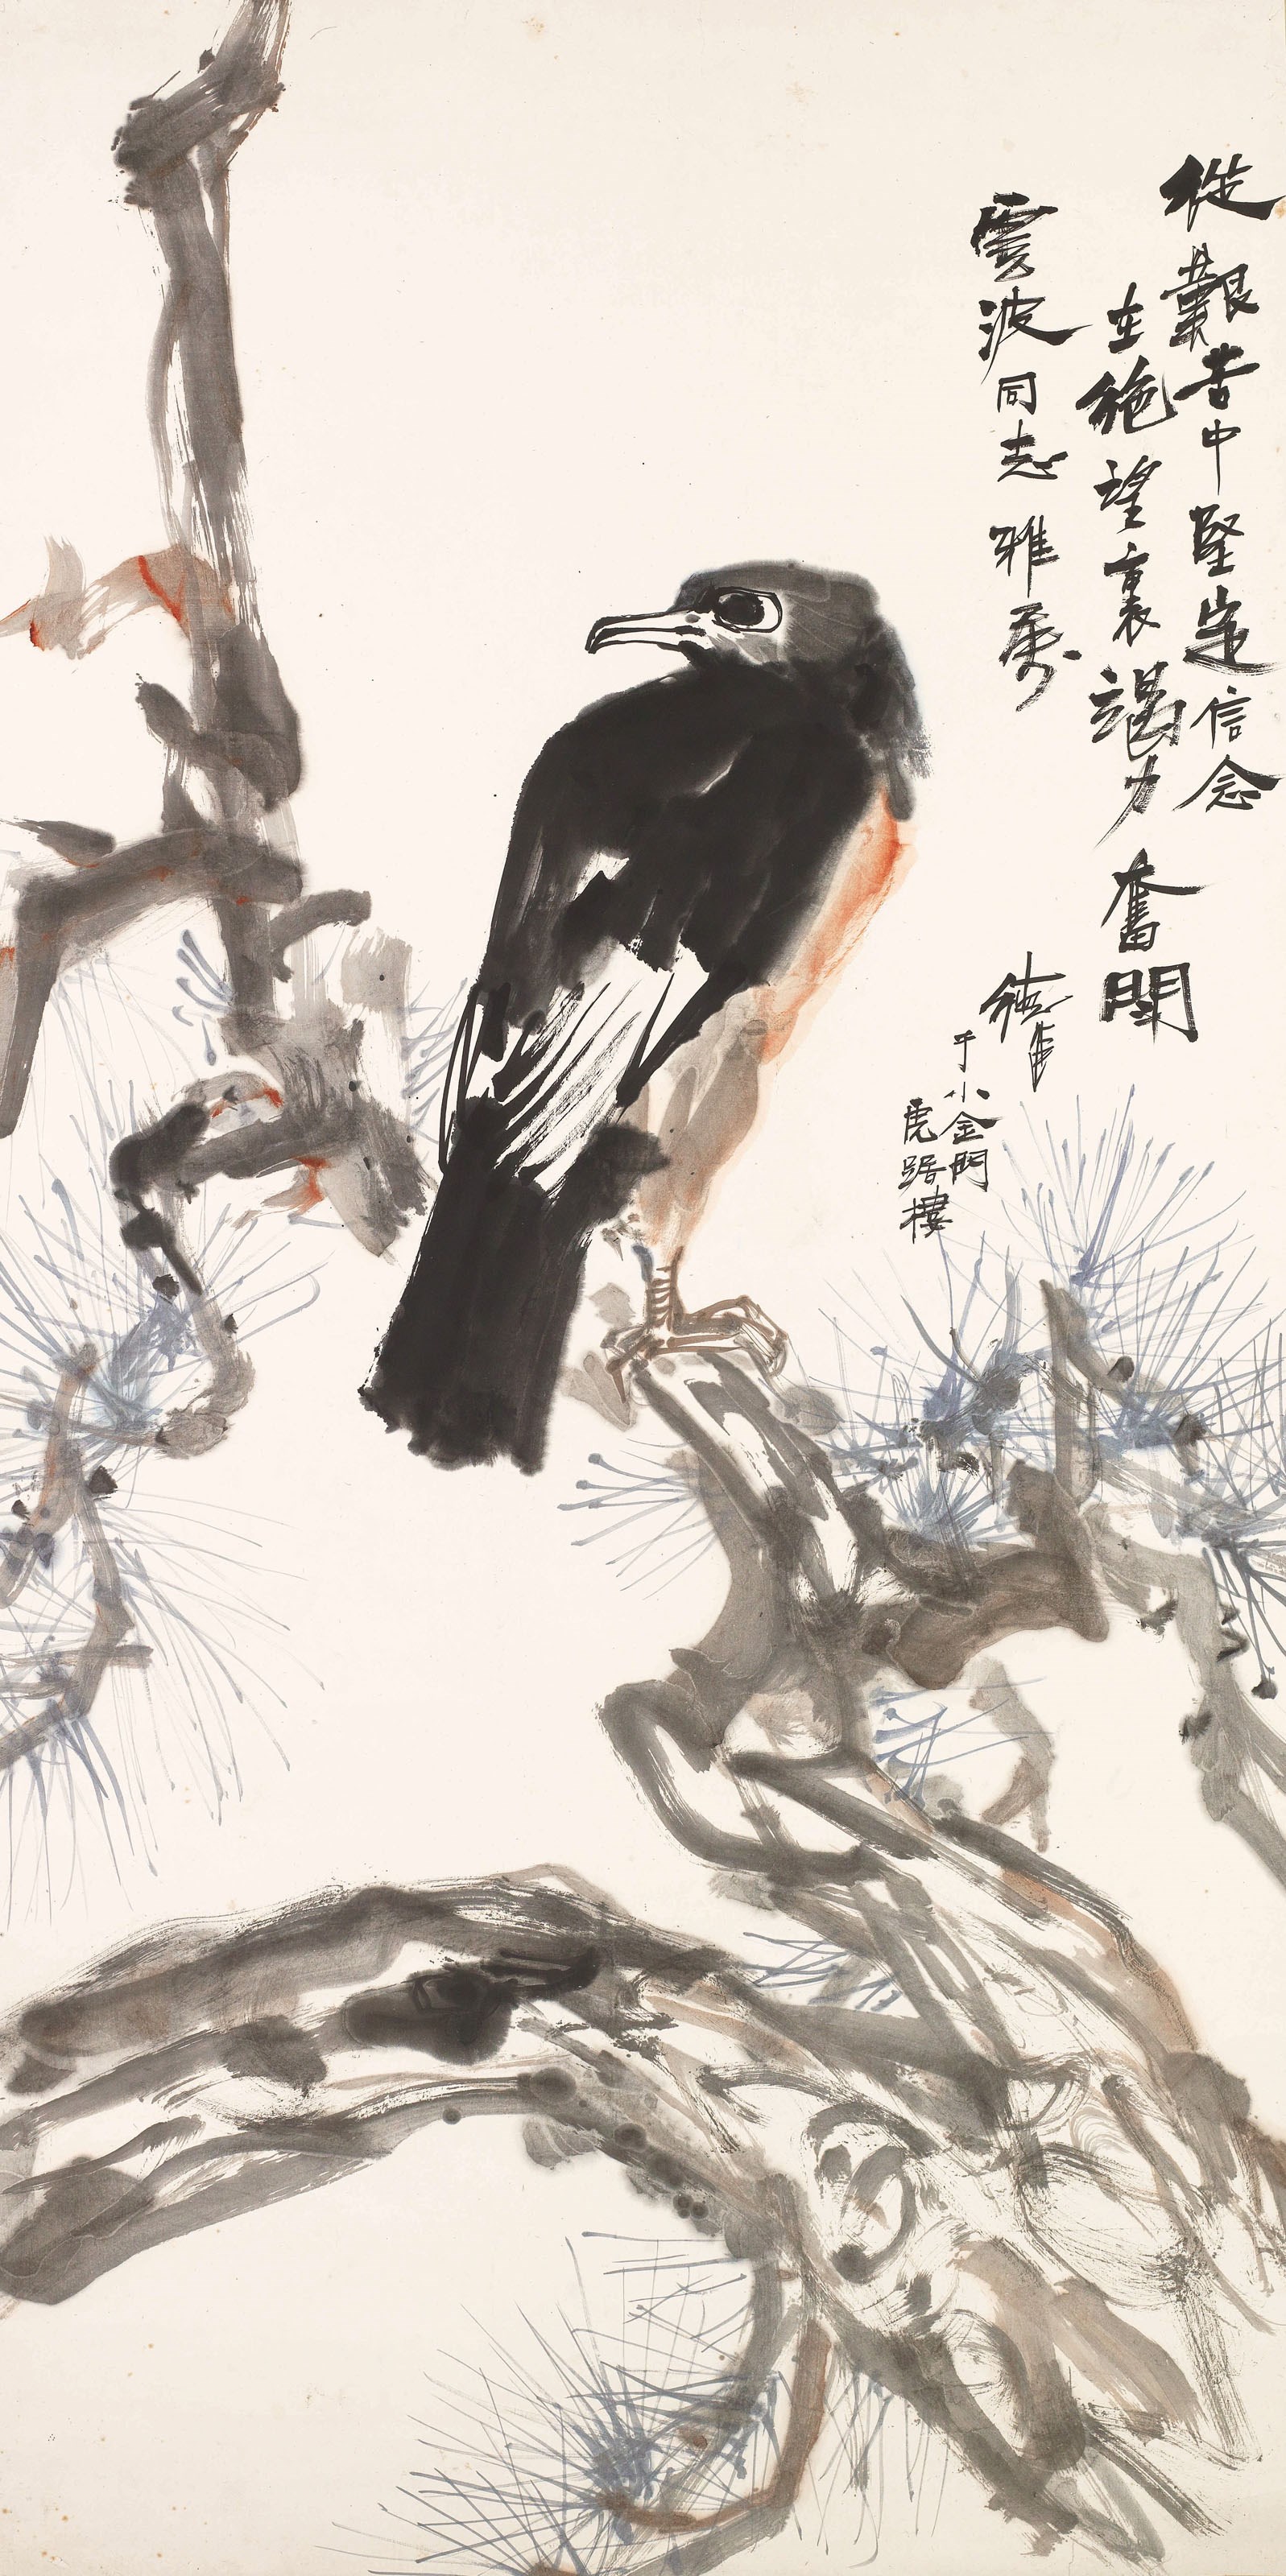 從艱苦中堅定信念
在絕望裏竭力奮鬥
雲波同志雅屬
于小金門
虎踞樓